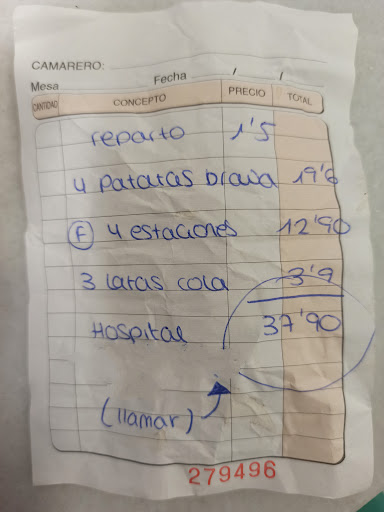 CAMARERO:
Mesa Fecha / /
CANTIDAD CONCEPTO PRECIO TOTAL
reparto 1'5
4 patatas brava 19'6
(F) 4 estaciones 12'90
3 latas cola 3'9
Hospital 37'90
(llamar)
279496